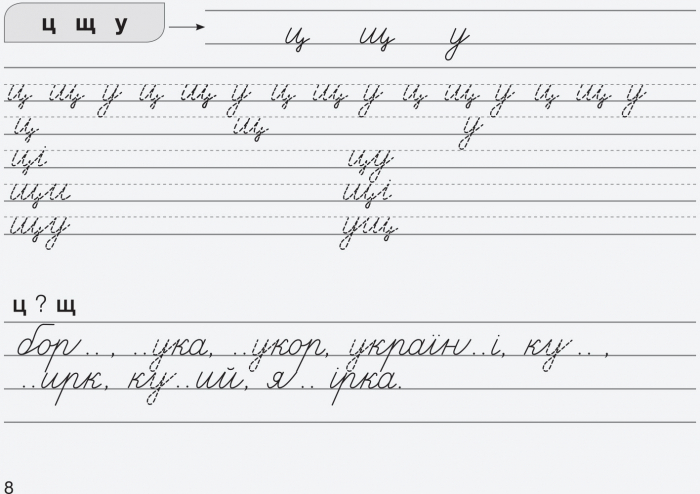 ц щ у
ц щ у
ц щ у ц щ у ц щ у ц щ у ц щ у
ц щ у
ці цу
щи щі
щу ущ
ц ? щ
бор.. , ..ука, ..укор, україн..і, ку.. ,
..ирк, ку..ий, я.. ірка.
8